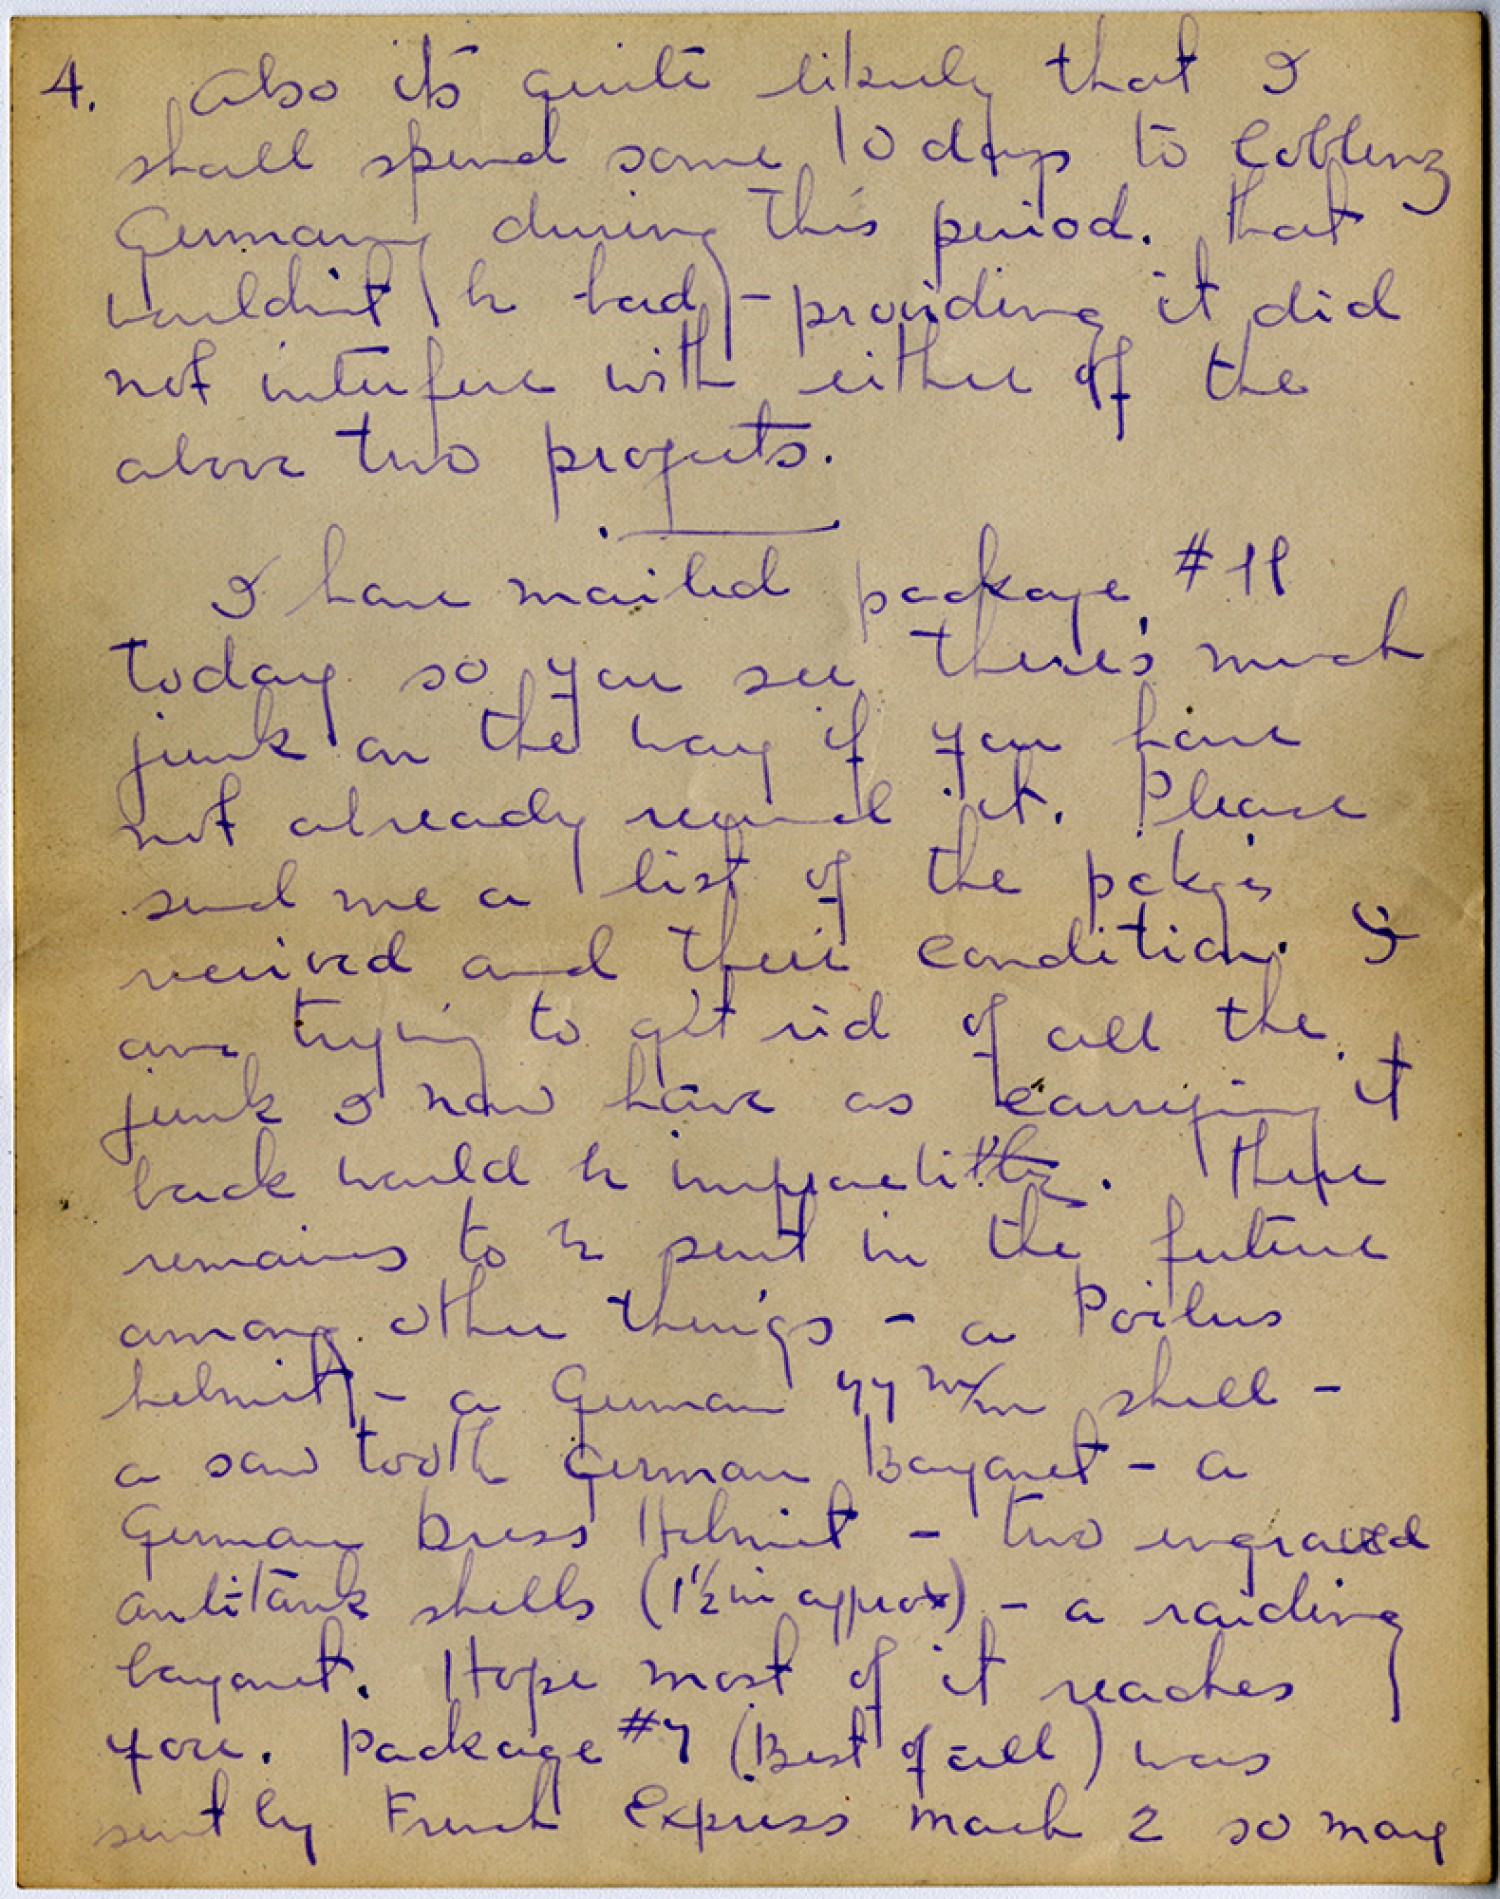 4. Also it's quite likely that I
shall spend some 10 days to Coblenz
Germany during this period. That
wouldn't be bad - providing it did
not interfere with either of the
above two projects.
I have mailed package #11
today so you see there's much
junk on the way if you have
not already received it. Please
send me a list of the pckg's
received and their condition. I
am trying to get rid of all the
junk I now have as carrying it
back would be
remains to be sent in the future
among other things - a Poilus
helmit - a German 77 m/m shell -
a saw tooth German Bayonet - a
German Dress Helmit - two engraved
antitank shells (1 1/2 in approx) - a raiding
bayonet. Hope most of it reaches
you. Package #7 (Best of all) was
sent by French Express March 2 so may